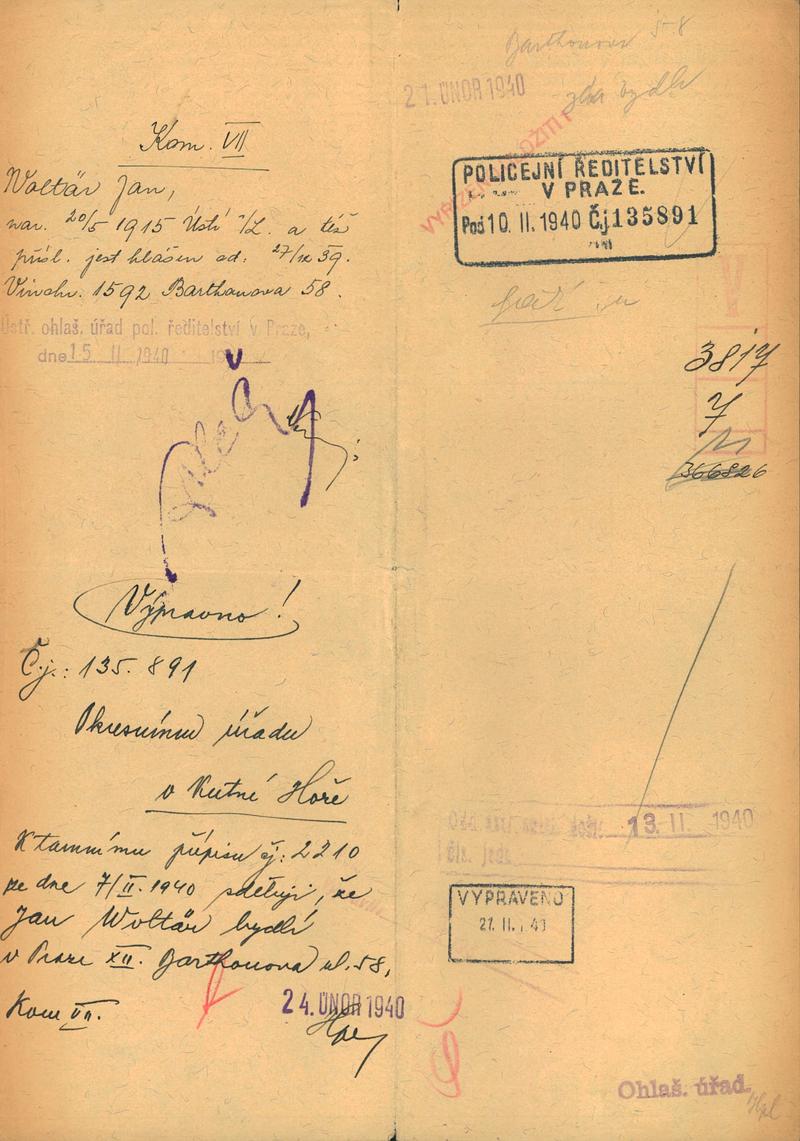 Kom. VII
Woltär Jan,
nar. 20/5 1915 Ústí n/L. a též
přísl. jest hlášen od: 27/IX 39.
Vinohr. 1592 Barthonova 58.
Ústř. ohlaš. úřad pol. ředitelství v Praze,
dne 15. II. 1940
Výpravno!
Č.j.: 135.891
Okresnímu úřadu
v Kutné Hoře
K tamnímu přípisu čj: 2210
ze dne 7/II. 1940 sděluji, že
Jan Woltär bydlí
v Praze XII. Barthonova ul. 58,
Kom VII.
24. ÚNOR 1940
Barthonova 58
21. ÚNOR 1940
zda bydlí
POLICEJNÍ ŘEDITELSTVÍ
V PRAZE.
Pod 10. II. 1940 Čj. 135891
3817
7
366826
13. II. 1940
VYPRAVENO
Ohlaš. úřad.